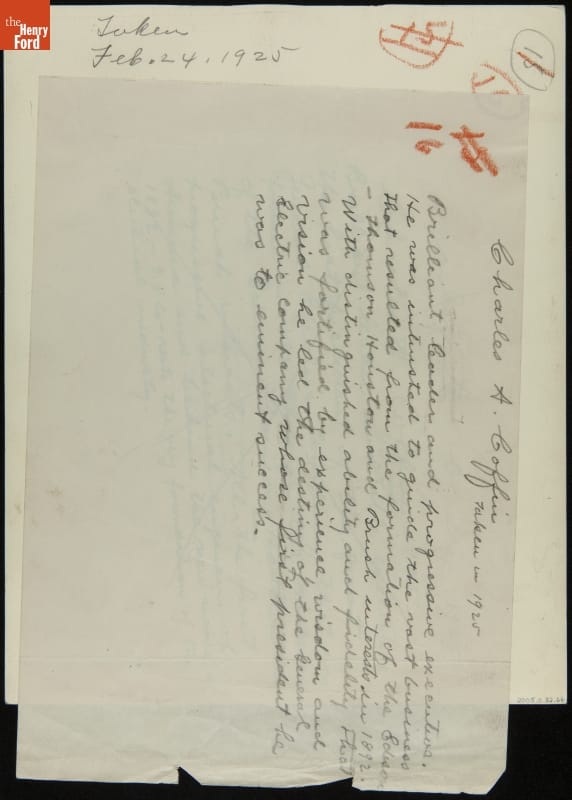 the
Henry
Ford
Taken
Feb. 24, 1925
15
16
Charles A. Coffin
Taken in 1925
Brilliant leader and progressive executive.
He was intrusted to guide the vast business
that resulted from the formation of the Edison
- Thomson Houston and Brush interests in 1892.
With distinguished ability and fidelity that
was fortified by experience, wisdom and
vision he led the destiny of the General
Electric company whose first president he
was to eminent success.